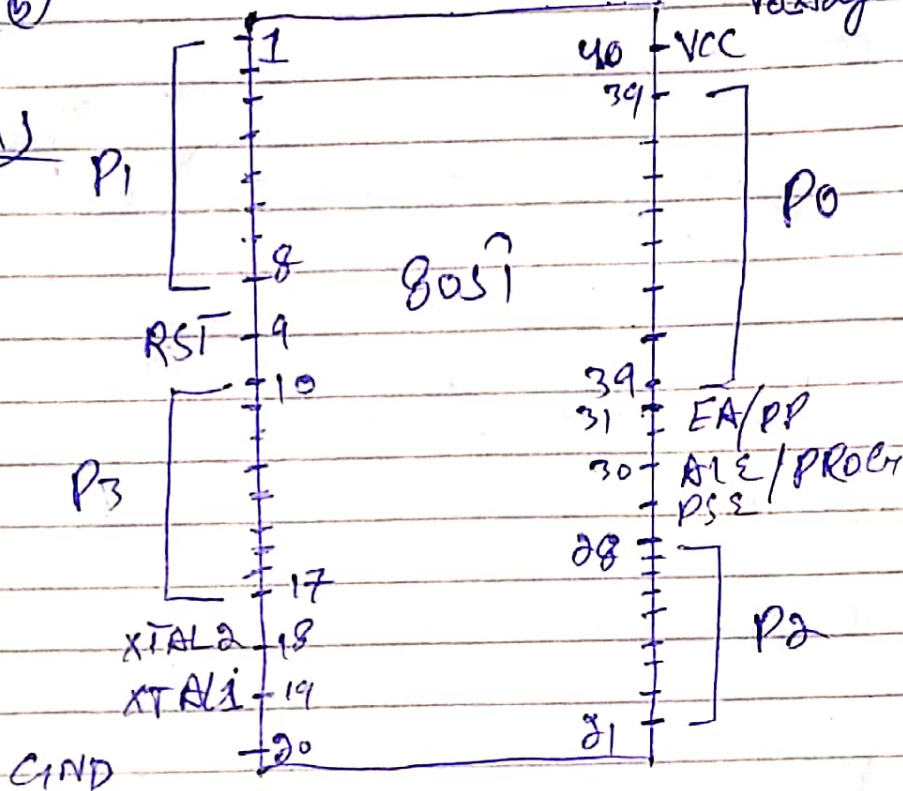 1
40 VCC
39
P1
P0
8
8051
RST 9
10
39
31 EA/PP
P3
30 ALE/PROG
PSE
28
17
P2
XTAL2 18
XTAL1 19
21
20
GND